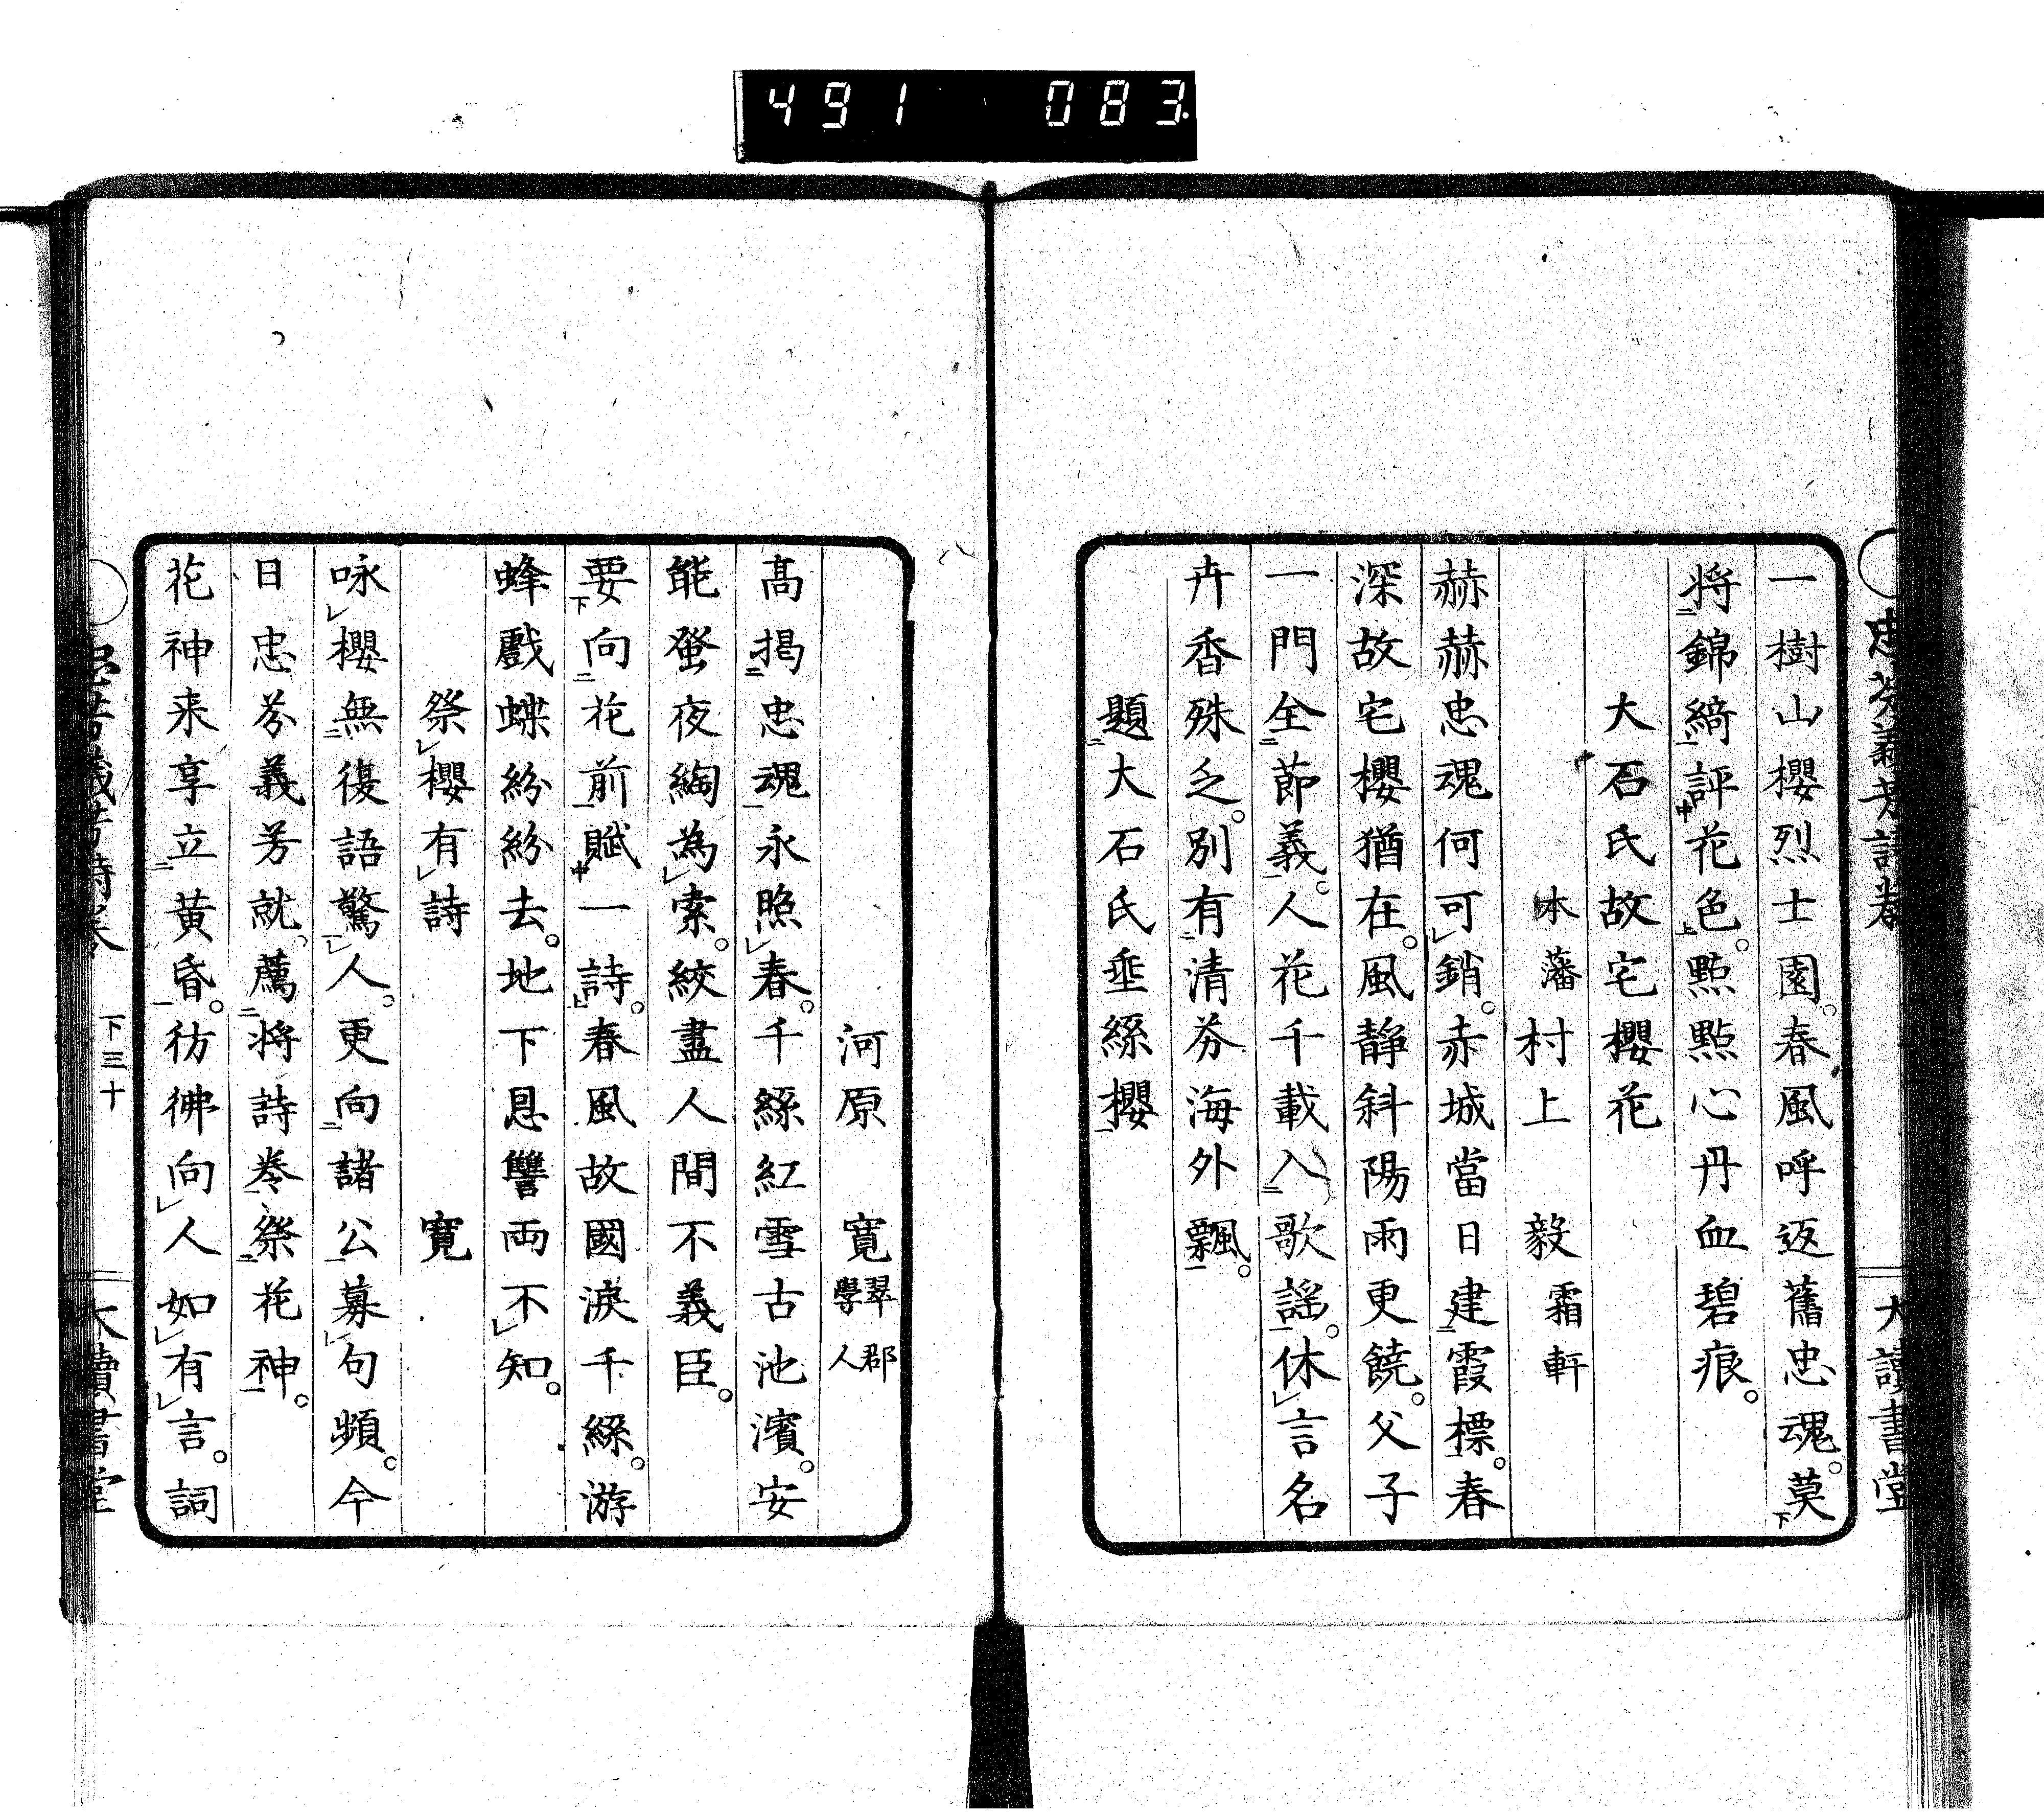 491 083
忠芬義芳詩巻
大讀書堂
一樹山櫻烈士園。春風呼返舊忠魂。莫
將錦綺評花色。點點心丹血碧痕。
大石氏故宅櫻花
本藩 村上 毅 霜軒
赫赫忠魂何可銷。赤城當日建霞標。春
深故宅櫻猶在。風靜斜陽雨更饒。父子
一門全節義。人花千載入歌謡。休言名
卉香殊乏。別有清芬海外飄。
題大石氏垂絲櫻
河原 寛 翠郡學人
高揭忠魂永照春。千絲紅雪古池濱。安
能蛩夜綯為索。絞盡人間不義臣。
要向花前賦一詩。春風故國淚千絲。游
蜂戲蝶紛紛去。地下恩讐両不知。
祭櫻有詩 寛
咏櫻無復語驚人。更向諸公募句頻。今
日忠芬義芳就。薦將詩巻祭花神。
花神来享立黄昏。彷彿向人如有言。詞
忠芬義芳詩巻 下三十
大讀書堂